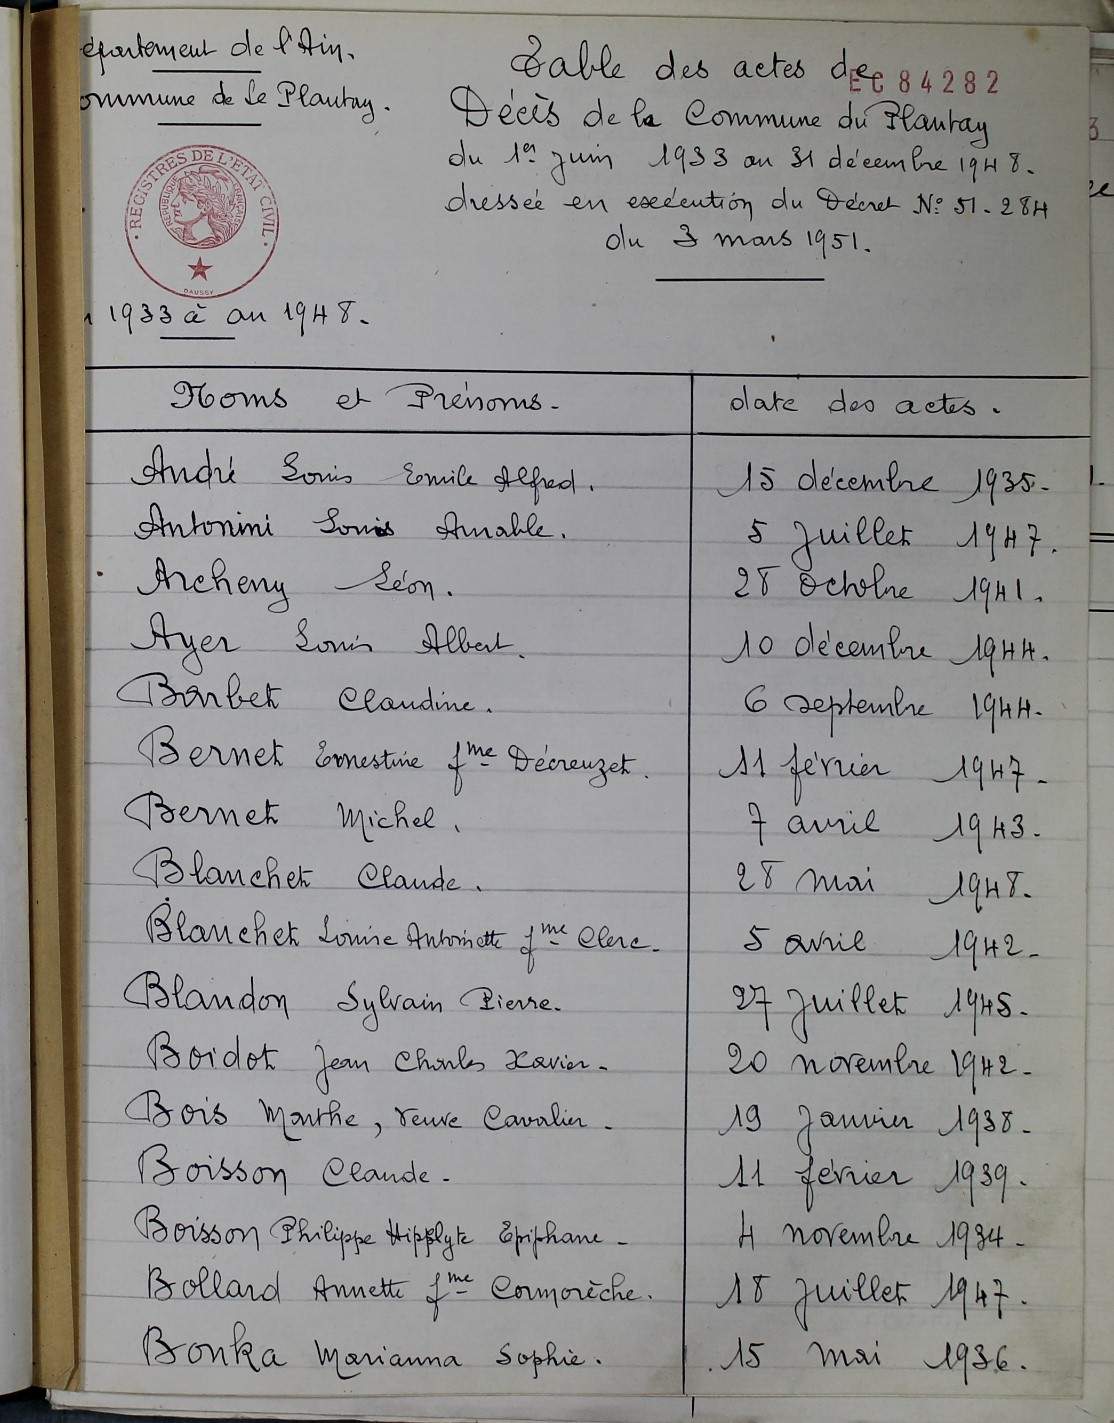 épartement de l'Ain.
ommune de Le Plantay.
REGISTRES DE L'ETAT CIVIL
REPUBLIQUE FRANÇAISE
DAUSSY
1933 à an 1948.
Table des actes de
EC 84282
Décès de la Commune du Plantay
du 1er juin 1933 au 31 décembre 1948.
dressée en exécution du Décret N° 51-284
du 3 mars 1951.
Noms et Prénoms - date des actes.
André Louis Emile Alfred. 15 décembre 1935-
Antonini Louis Amable. 5 Juillet 1947.
Archeny Léon. 28 Octobre 1941.
Ayer Louis Albert. 10 décembre 1944.
Barbet Claudine. 6 septembre 1944-
Bernet Ernestine fme Décreuzet. 11 février 1947-
Bernet Michel. 7 avril 1943-
Blanchet Claude. 28 mai 1948-
Blanchet Louise Antoinette fme Clerc- 5 avril 1942-
Blandon Sylvain Pierre. 27 juillet 1945-
Boidot Jean Charles Xavier- 20 novembre 1942-
Bois Marthe, veuve Cavalier- 19 janvier 1938-
Boisson Claude- 11 février 1939.
Boisson Philippe Hipplyte Epiphane- 4 novembre 1934-
Bollard Annette fme Cormorèche. 18 juillet 1947.
Bonka Marianna Sophie. 15 mai 1936.